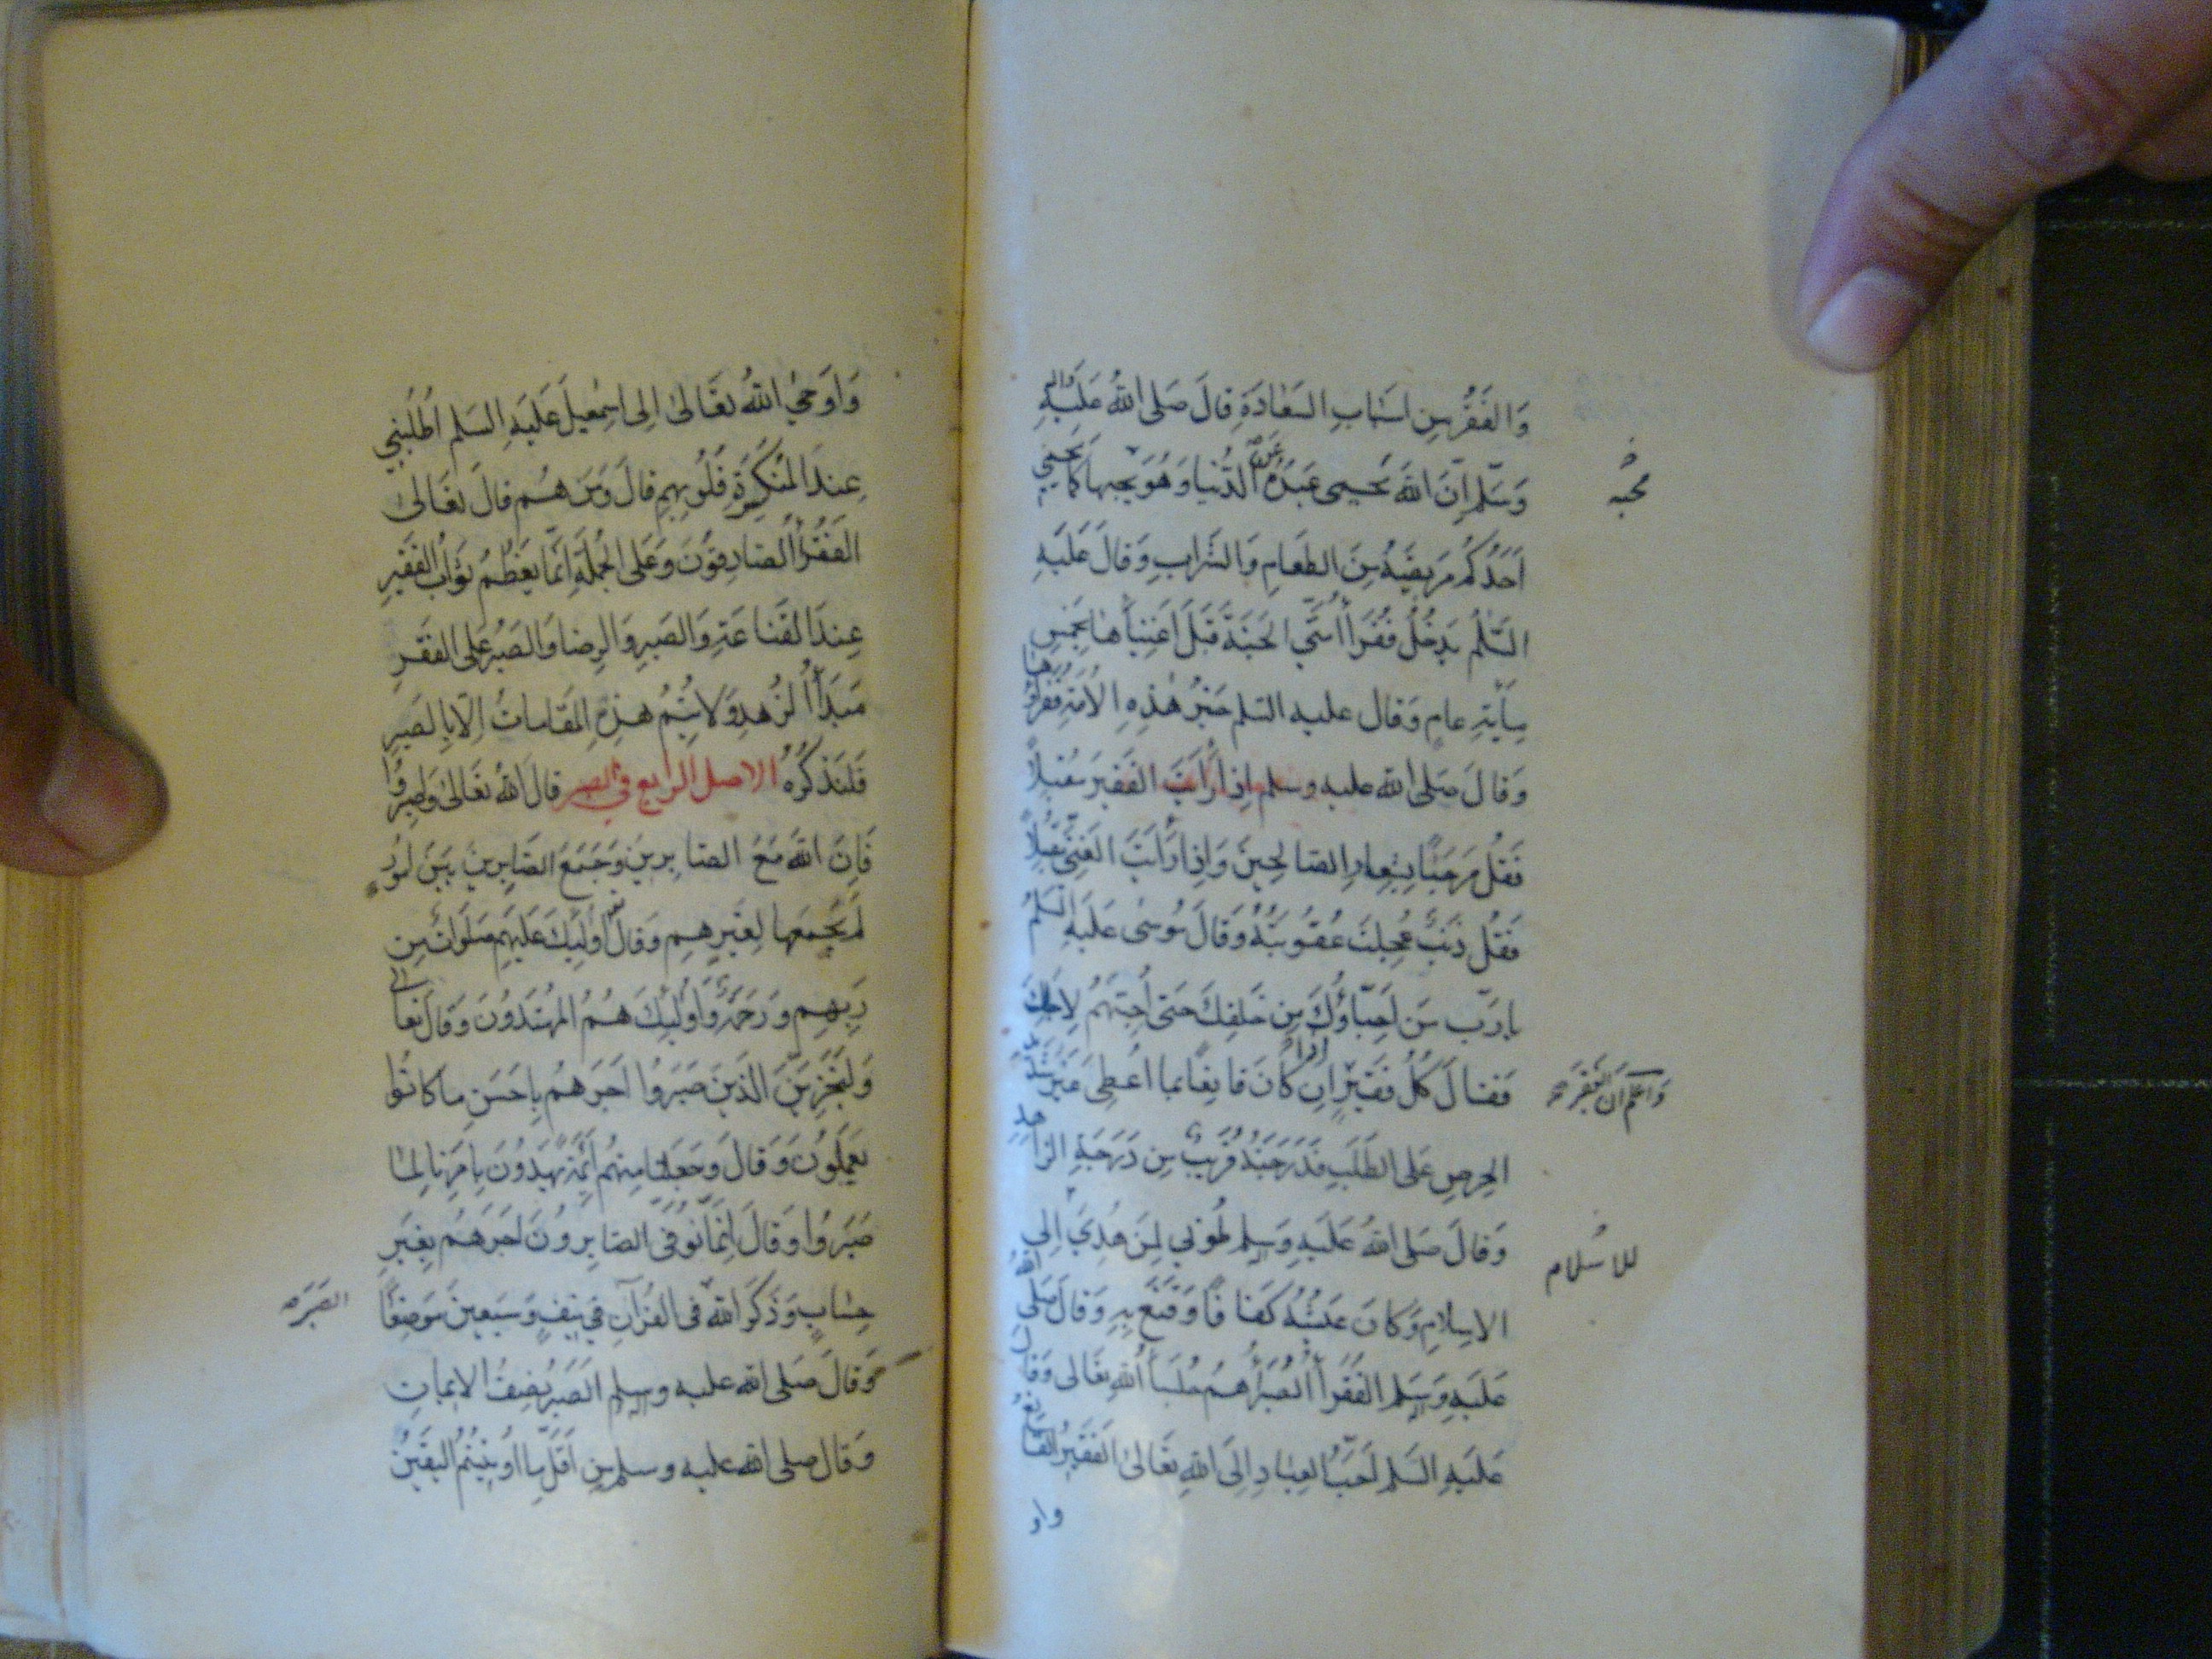 وَالفَقْرُ مِن اَسْبَابِ السَّعَادَةِ قَالَ صَلى اللهُ عَلَيْهِ واله
وَسَلم اِنَّ اللهَ يَحْمِى عَبْدَهُ عَن الدُّنيا وَهُوَ يحبها كَما يَحْمِي
محبه
اَحَدُكُمْ مَرِيضَهُ مِنَ الطَعَامِ وَالشَرَابِ وَقالَ عَلَيْهِ
السَّلمُ يَدخُلُ فُقَرَاأُ اُمَّتِي الجَنَةَ قَبْلَ اَغنِياَّهَا بخَمسِ
مِأَيَةِ عامٍ وَقال عليه السَلم خَيْرُ هٰذِهِ الاُمَةِ فُقَراؤُها
وَقالَ صَلى اللهُ عليه وسلم اِذا رَأَيتَ الفَقيرَ مُقبِلاً
فَقُل مَرحَبًا بِشِعارِ الصَالحِينَ وَاِذا رَأَيتَ الغَنِيَّ مُقبِلاً
فَقُل ذَنبٌ عُجِلَت عُقُوبَتُهُ وَقالَ مُوسٰى عَلَيهِ السَّلمُ
يا رَبّ مَن اَحِبّاؤُكَ مِن خَلقِكَ حَتى اُحِبَهُم لاَجلِكَ
فَقالَ كُلُ فَقيرٍ
وَاعْلَم اَنَّ الفَقيرَ
اِذا كانَ قانِعًا بما اُعطِىَ غَيرَ شَديدِ
الحِرصِ عَلى الطَلَبِ فَدَرَجَتُهُ قَرِيبٌ مِن دَرَجَةِ الزاهدِ
وَقالَ صَلى اللهُ عَلَيهِ وَسلم طُوبٰي لِمَن هُدِيَ اِلى
للاسلام
الاسِلامِ وَكانَ عَيشُهُ كَفافًا وَقَنَعَ بِهِ وَقالَ صَلى الله
عَليَهِ وَسَلم الفُقَرَاأُ الصُبَرَاأُ هُم جُلَسَاأُ اللهِ تعَالى وَقالَ
عَليَهِ السَلم اَحَبُّ العِبَادِ اِلَى اللهِ تعَالىٰ الفَقيرُ القانِعُ
واو
وَاَوحىٰ اللهُ تعَالىٰ اِلى اسِمعيلَ عَليَهِ السَلم اُطلُبنِي
عِندَ المُنكَسِرَةِ قُلُوبِهِم قالَ وَمَن هُم قالَ تعَالىٰ
الفُقَرَاأُ الصّادِقوُنَ وَعَلى الجُملَةِ اِنّما يَعظُمُ ثَوابُ الفَقيرِ
عِندَ القَناعَةِ وَالصَبرِ وَالرِضا وَالصَبرُ عَلى الفَقرِ
مَبدَاأُ الزُهدِ وَلا يَتِمُ هذِهِ المَقاماتُ اِلاّ بِالصَبرِ
فَلنَذكُرُهُ الاصل الرابع في الصبر قالَ اللهُ تعَالىٰ وَاصبِرُوا
فَاِنَّ اللهَ مَعَ الصّابِرينَ وَجَمَعَ الصَّابِرِينَ بَينَ اُمُورٍ
لَم يَجمَعها لِغَيرِهِم وَقالَ تعالى اُولئِكَ عَليَهِم صَلَواتٌ مِن
رَبِهِم وَرَحمَةٌ وَاُولَئِكَ هُمُ المُهتَدُونَ وَقالَ تعَالى
وَلَنجزِيَنَّ الَّذِينَ صَبَرُوا اَجرَهُم بِاَحسَنِ ما كانُوا
يَعمَلُونَ وَقالَ وَجَعَلنا مِنهُم اَئِمَةً يَهدُونَ بِاَمرِنا لَمّا
صَبَرُوا وَقالَ اِنَّما يُوَفَّى الصّابِرونَ اَجرَهُم بِغيَرِ
حِسابٍ وَذَكَرَ اللهُ فى القُرآنِ في نيفٍ وَسَبعِينَ مَوضِعًا
الصَبرَ
وَقالَ صَلى الله عليه وسلم الصَبرُ نِصفُ الايمانِ
وَقال صلى الله عليه وسلم مِن اَقَلِّ ما اُوتِيتُمُ اليَقينُ